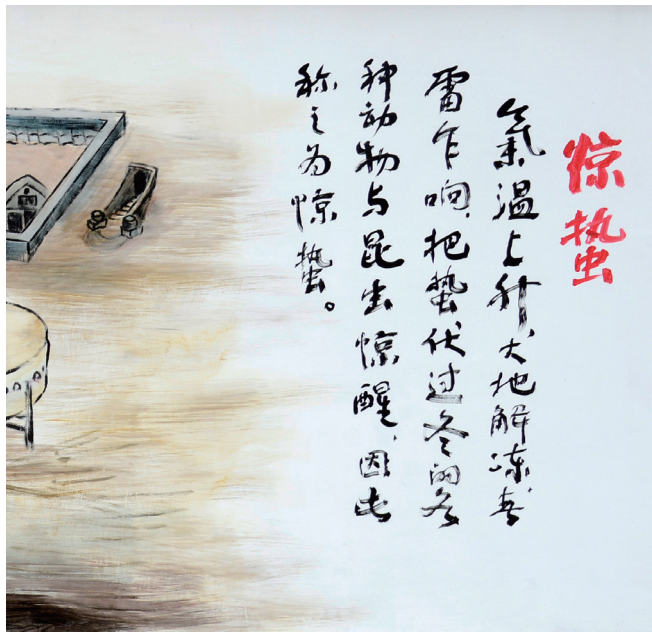 惊蛰
氣温上升、大地解冻、春
雷乍响、把蛰伏过冬的各
种动物与昆虫惊醒、因此
称之为惊蛰。